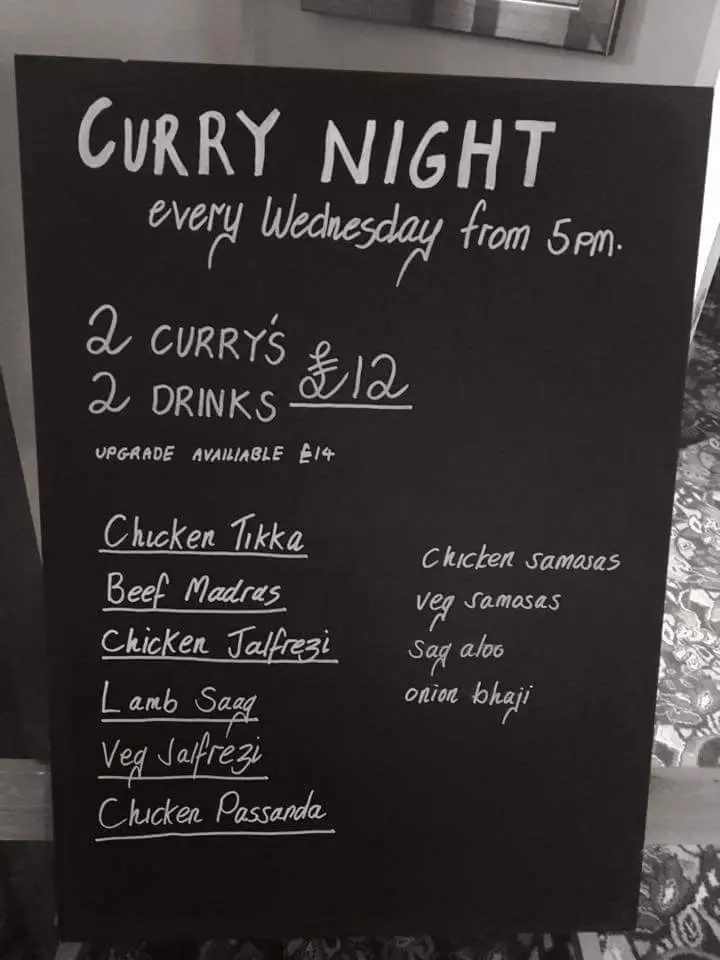 CURRY NIGHT
every Wednesday from 5pm.
2 CURRY'S £12
2 DRINKS
UPGRADE AVAILIABLE £14
Chicken Tikka
Beef Madras
Chicken Jalfrezi
Lamb Saag
Veg Jalfrezi
Chicken Passanda
Chicken samosas
veg samosas
Sag aloo
onion bhaji